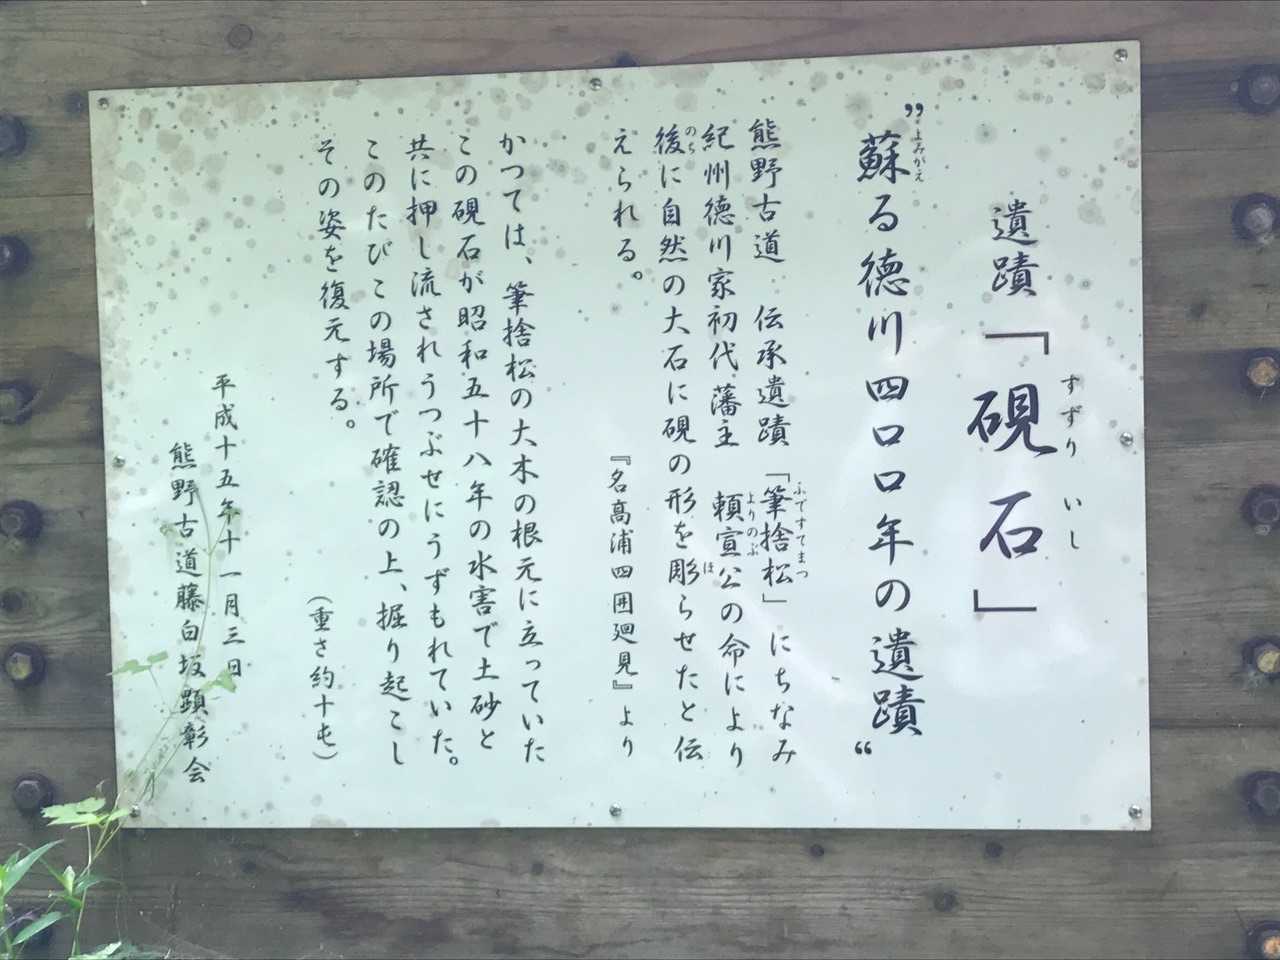 遺蹟「硯石」
すずり いし
"蘇る徳川四〇〇年の遺蹟"
よみがえ
熊野古道 伝承遺蹟「筆捨松」にちなみ
ふですてまつ
紀州徳川家初代藩主 頼宣公の命により
よりのぶ
後に自然の大石に硯の形を彫らせたと伝
のち
ほ
えられる。
『名高浦四囲廻見』より
かつては、筆捨松の大木の根元に立っていた
この硯石が昭和五十八年の水害で土砂と
共に押し流されうつぶせにうずもれていた。
このたびこの場所で確認の上、掘り起こし
その姿を復元する。
(重さ約十屯)
平成十五年十一月三日
熊野古道藤白坂顕彰会